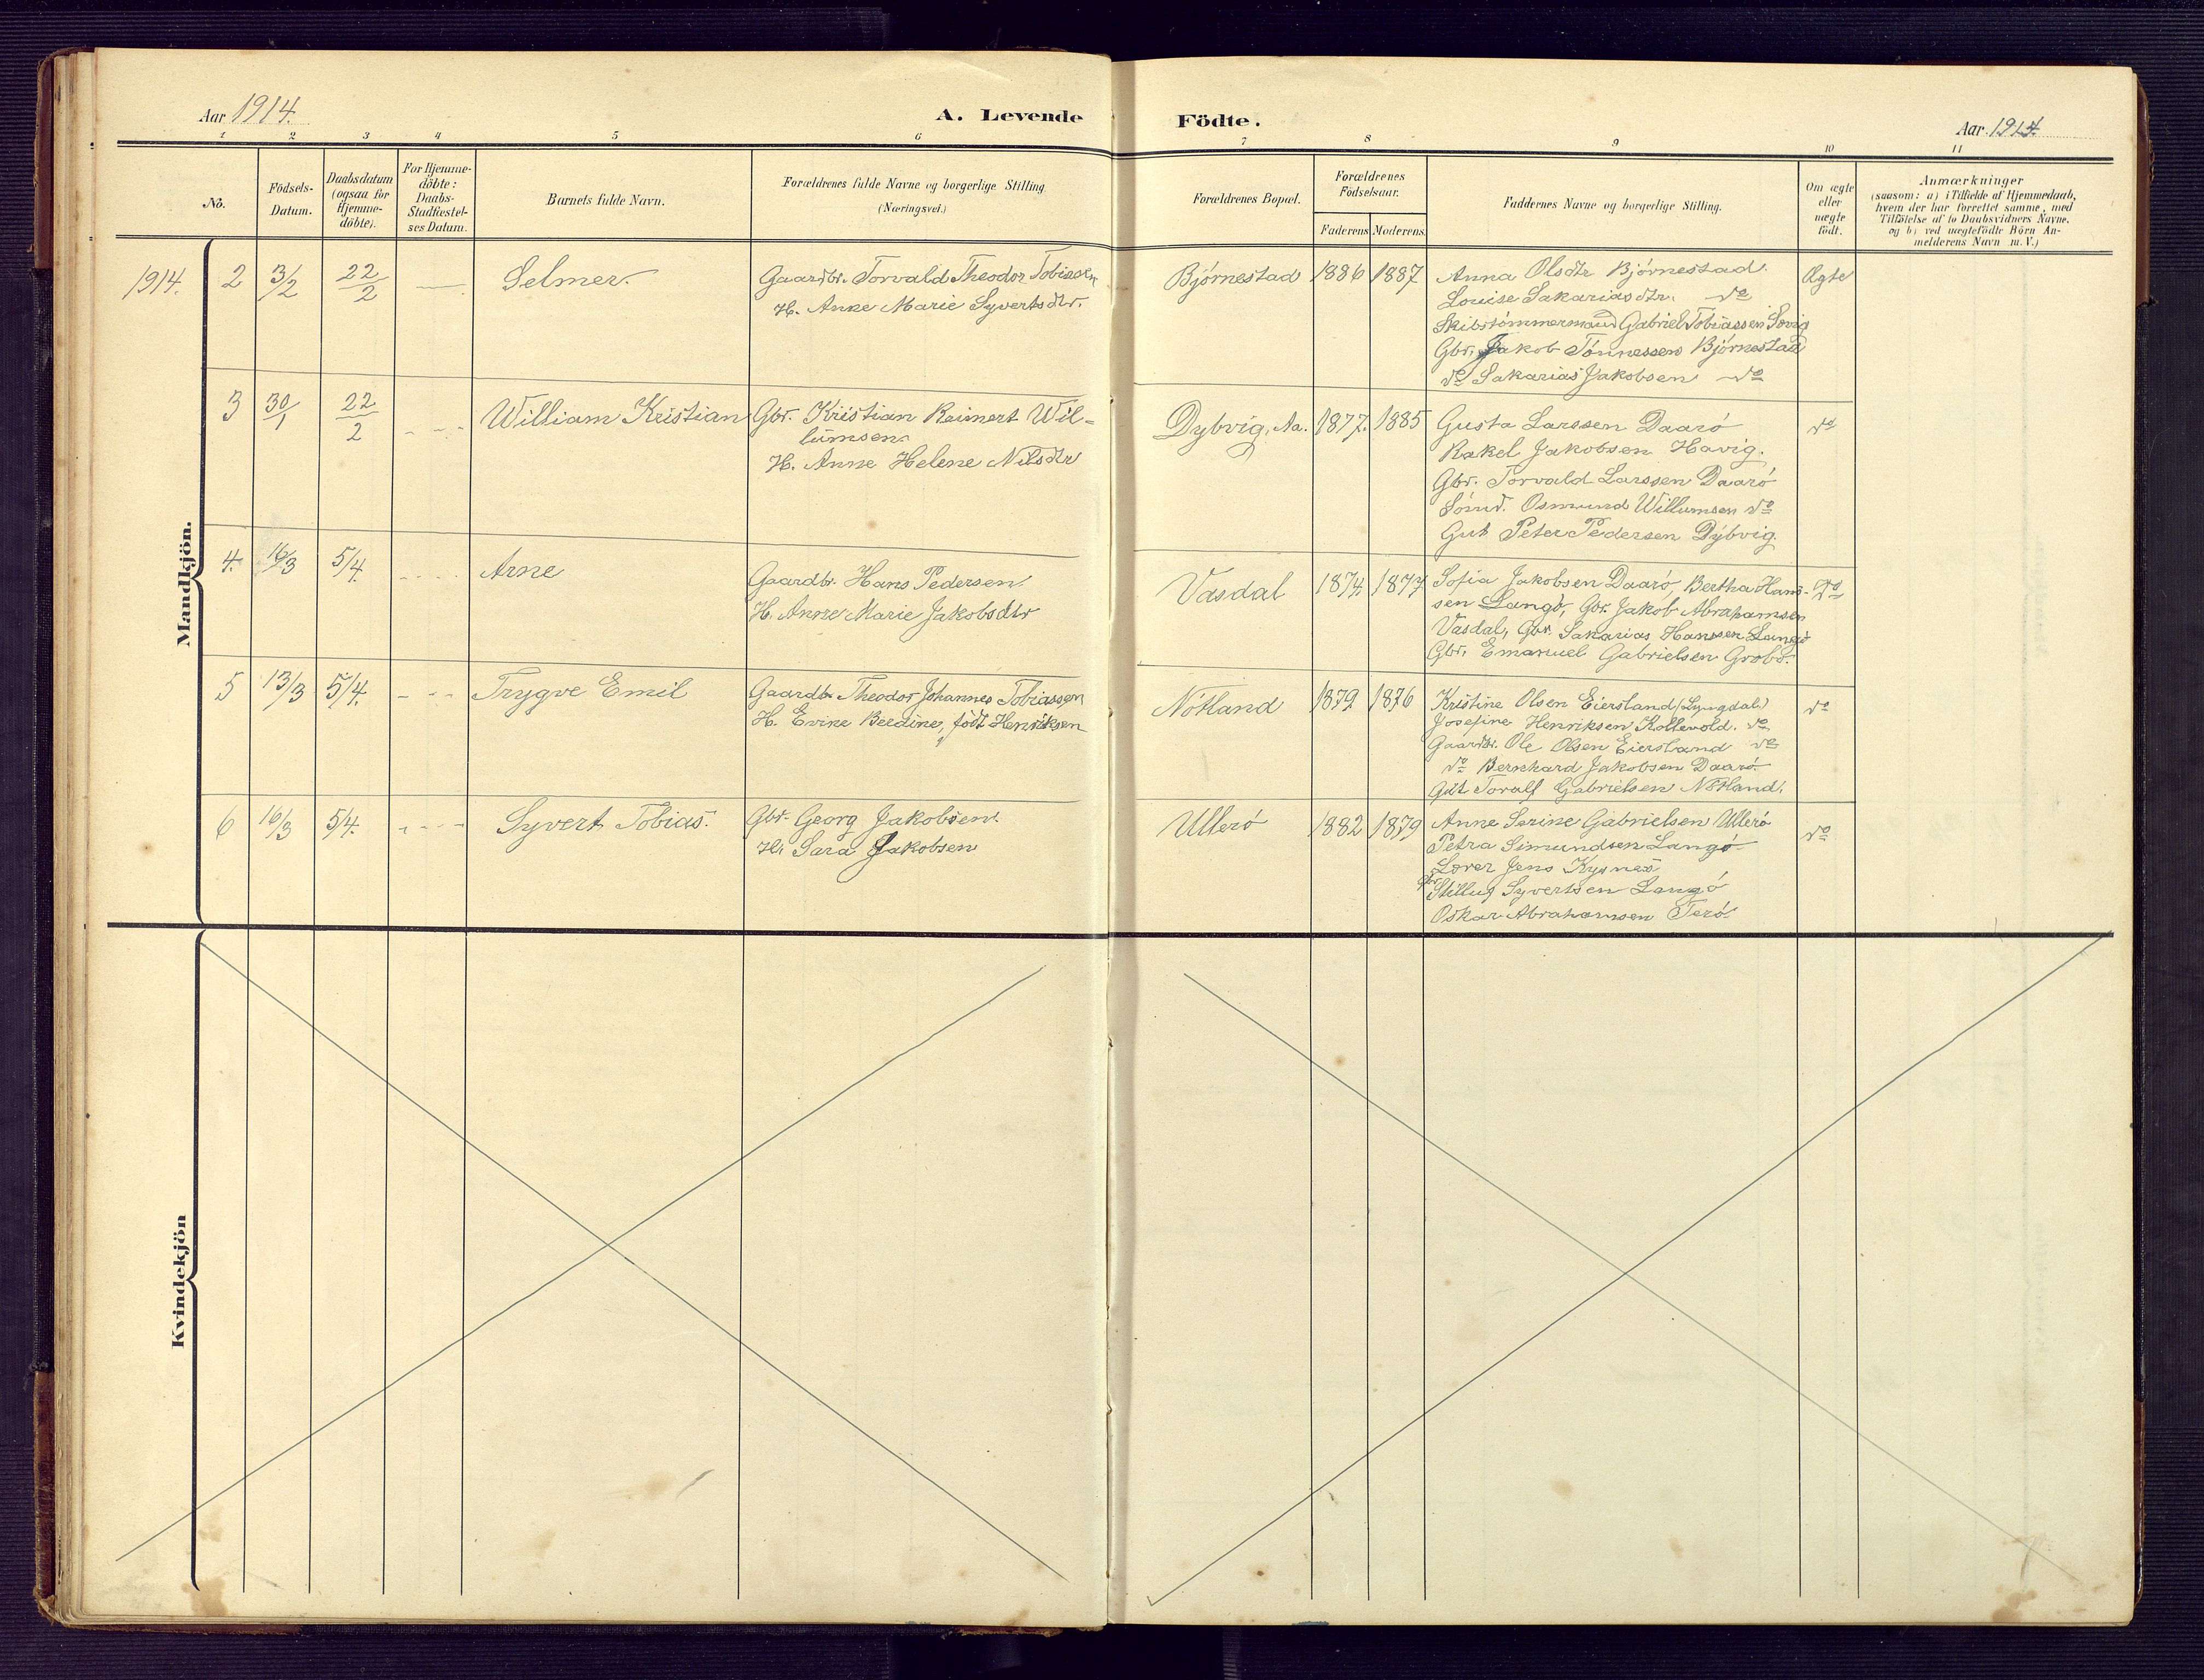 Aar 1914.
A. Levende Födte.
Aar 1914
1 2 3 4 5 6 7 8 9 10 11
No.
Födsels-
Datum.
Daabsdatum
(ogsaa for
Hjemme-
döbte).
For Hjemme-
döbte:
Daabs-
Stadfæstel-
ses Datum.
Barnets fulde Navn.
Forældrenes fulde Navne og borgerlige Stilling.
(Næringsvei.)
Forældrenes Bopæl.
Forældrenes
Födselsaar.
Faderens Moderens
Faddernes Navne og borgerlige Stilling.
Om ægte
eller
uægte
födt.
Anmærkninger
(saasom: a) i Tilfælde af Hjemmedaab,
hvem der har forrettet samme, med
Tilföielse af to Daabsvidners Navne,
og b) ved uægtefödte Börn An-
melderens Navn m. V.)
Mandkjön.
1914. 2 3/2 22/2 Selmer.
Gaardbr. Torvald Theodor Tobiassen
H. Anne Marie Syvertsdtr.
Bjørnestad 1886 1887
Anna Olsdtr Bjørnestad.
Louise Sakariasdtr. do
Skibstømmermand Gabriel Tobiassen
Gbr. Jakob Tønnessen Bjørnestad
do Sakarias Jakobsen do
Ægte
3 30/1 22/2 William Kristian
Gbr. Kristian Reimert Wil-
lumsen.
H. Anne Helene Nilsdtr
Dybvig, Na. 1877. 1885
Gusta Larssen Daarø
Rakel Jakobsen Havig.
Gbr. Torvald Larssen Daarø
Sømd. Osmund Willumsen do
Gut Peter Pedersen Dybvig.
do
4. 16/3 5/4. Arne
Gaardbr. Hans Pedersen.
H. Anne Marie Jakobsdtr
Vasdal 1874 1877
Sofia Jakobsen Daarø, Bertha Han-
sen Langø, Gbr. Jakob Abrahamsen
Vasdal, Gbr. Sakarias Hanssen Langø
Gbr. Emanuel Gabrielsen
Do
5 13/3 5/4. Trygve Emil
Gaardb. Theodor Johannes Tobiassen
H. Evine Berdine, født Henriksen
Nøtland 1879 1876
Kristine Olsen Eiersland (Lyngdal)
Josefine Henriksen Kollevold. do
Gaardbr. Ole Olsen Eiersland do
do Bernhard Jakobsen Daarø.
Gut Toralf Gabrielsen Nøtland.
do
6 16/3 5/4. Syvert Tobias.
Gbr. Georg Jakobsen.
H. Sara Jakobsen
Ullerø 1882 1879
Anne Serine Gabrielsen Ullerø
Petra Simundsen Langø
Jens
Gbr. Syvertsen Langø
Oskar Abrahamsen Terø.
do
Kvindekjön